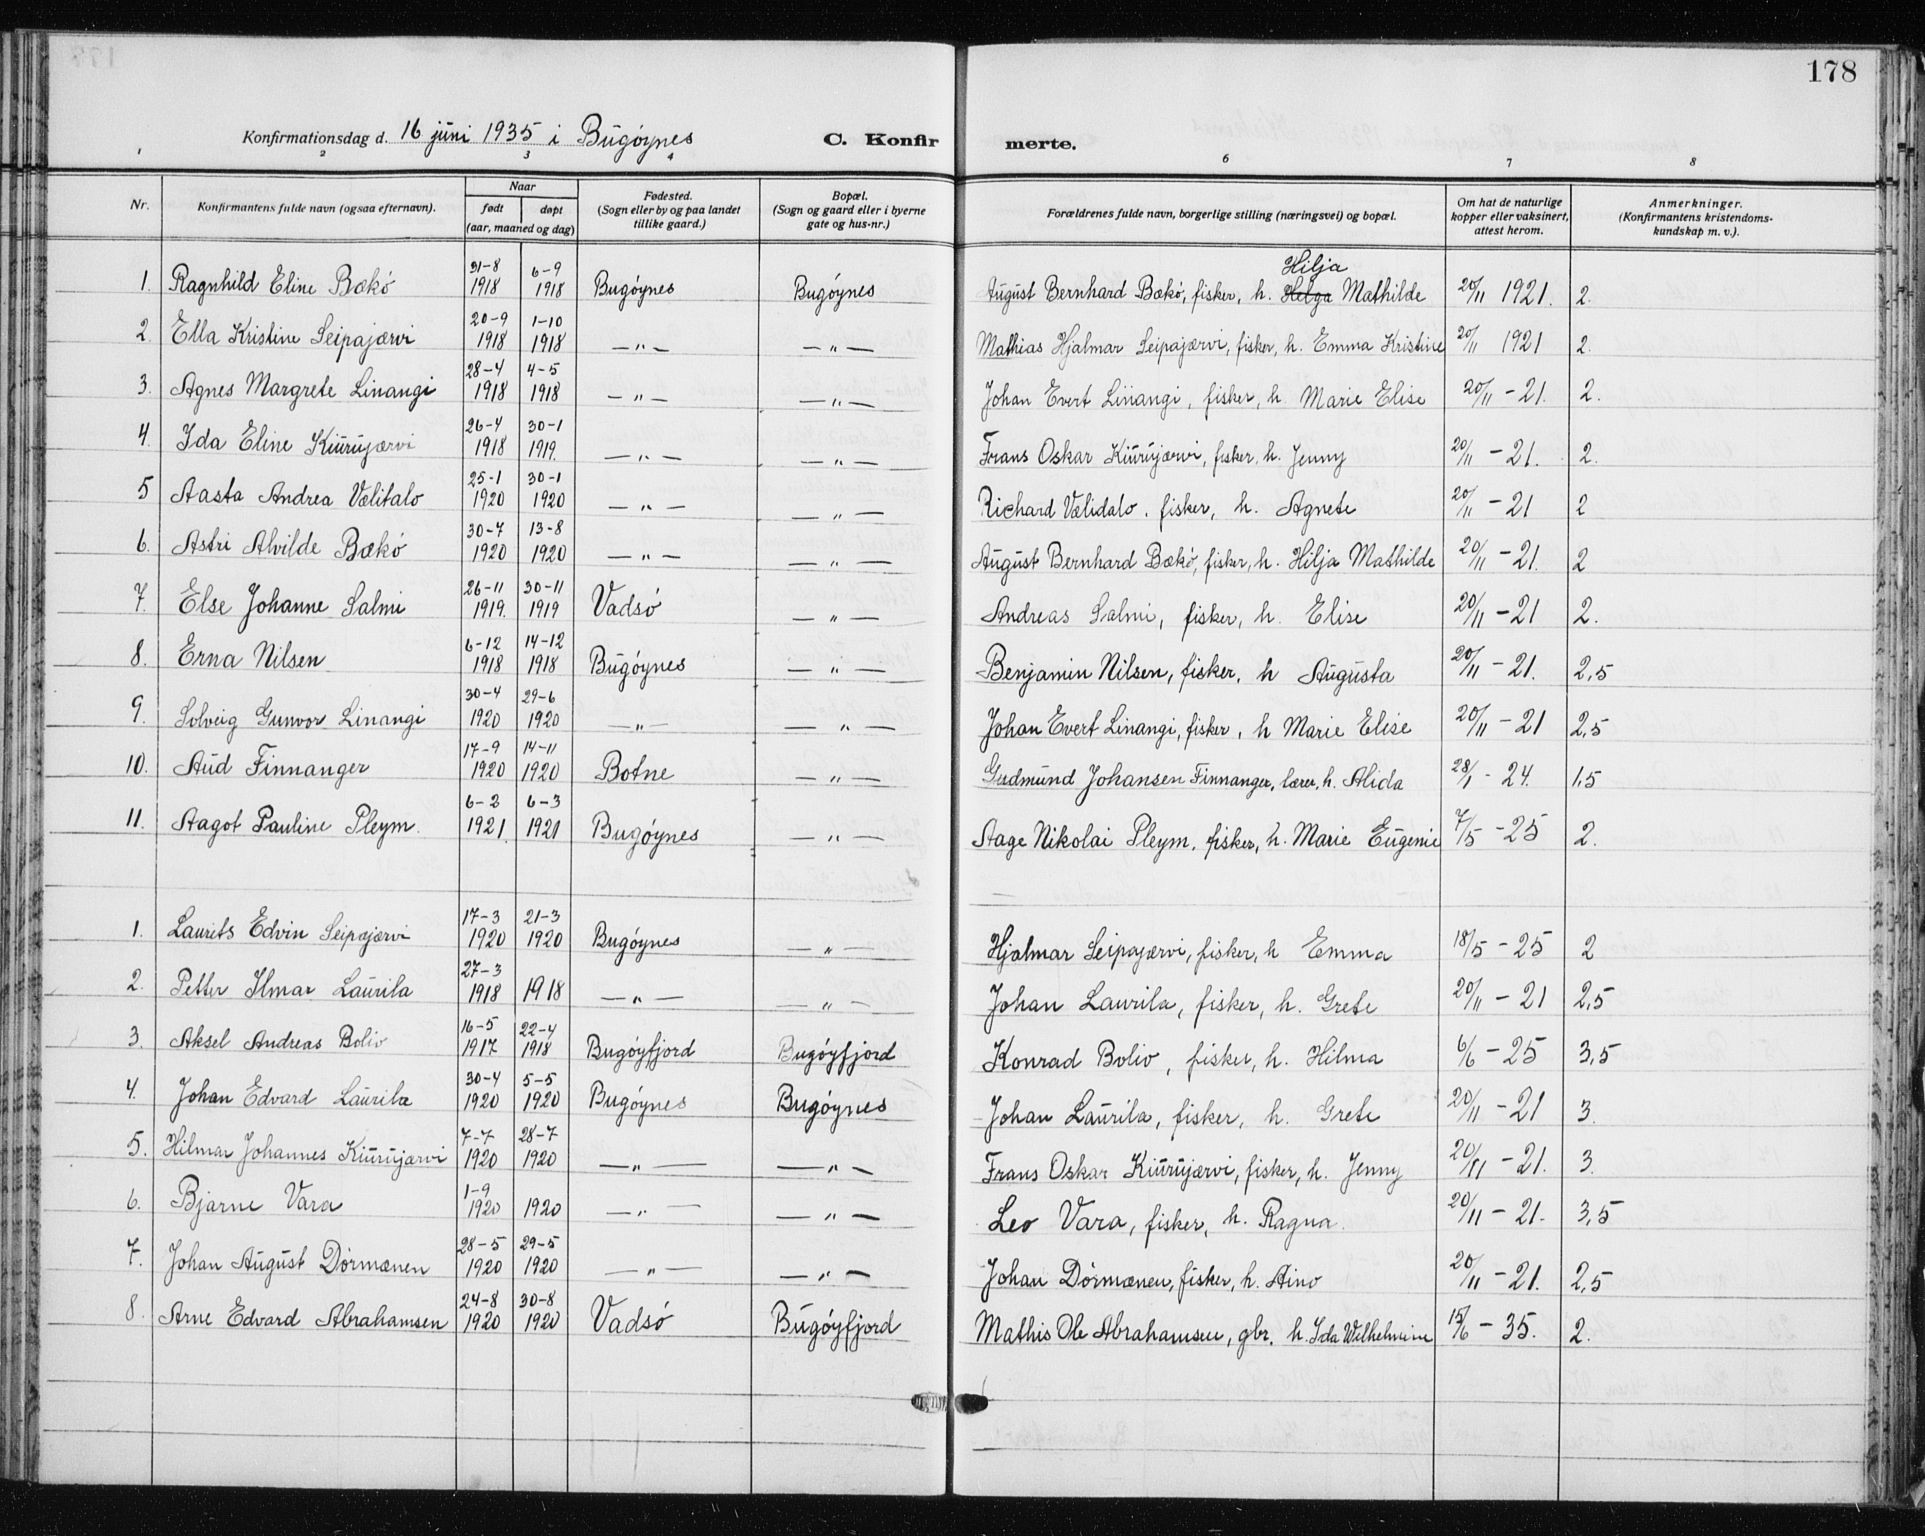 178
Konfirmationsdag d. 16 juni 1935 i Bugöynes C. Konfir merte.
2 3 4 6 7 8
Nr. Konfirmantens fulde navn (ogsaa efternavn). Naar født døpt (aar, maaned og dag) Fødested. (Sogn eller by og paa landet tillike gaard.) Bopæl. (Sogn og gaard eller i byerne gate og hus-nr.) Forældrenes fulde navn, borgerlige stilling (næringsvei) og bopæl. Om hat de naturlige kopper eller vaksinert, attest herom. Anmerkninger. (Konfirmantens kristendoms-kundskap m. v.).
1. Ragnhild Eline Bækö 31-8 1918 6-9 1918 Bugöynes Bugöynes August Bernhard Bækö, fisker, h. Helga Hilja Mathilde 20/11 1921. 2.
2. Ella Kristine Seipajærvi 20-9 1918 1-10 1918 —"— —"— Mathias Hjalmar Seipajærvi, fisker, h. Emma Kristine 20/11 1921 2.
3. Agnes Margrete Linangi 28-4 1918 4-5 1918 —"— —"— Johan Evert Liinangi, fisker, h. Marie Elise 20/11 - 21. 2.
4. Ida Eline Kiurujærvi 26-4 1918 30-1 1919. —"— —"— Frans Oskar Kiurujærvi, fisker, h. Jenny 20/11 - 21. 2.
5 Aasta Andrea Vælitalo 25-1 1920 30-1 1920 —"— —"— Richard Vælidalo, fisker, h. Agnete 20/11 - 21 2
6. Astri Alvilde Bækö 30-7 1920 13-8 1920 —"— —"— August Bernhard Bækö, fisker, h. Hilja Mathilde 20/11 - 21. 2
7. Else Johanne Salmi 26-11 1919. 30-11 1919 Vadsö —"— Andreas Salmi, fisker, h. Elise 20/11 - 21 2.
8. Erna Nilsen 6-12 1918 14-12 1918 Bugöynes —"— Benjamin Nilsen, fisker, h Augusta 20/11 - 21. 2,5
9. Solveig Gunvor Linangi 30-4 1920 29-6 1920 —"— —"— Johan Evert Linangi, fisker, h Marie Elise 20/11 - 21 2,5
10. Aud Finnanger 17-9 1920 14-11 1920 Botne —"— Gudmund Johansen Finnanger, lærer, h. Alida 28/1 - 24. 1,5
11. Aagot Pauline Pleym. 6-2 1921. 6-3 1921 Bugöynes —"— Aage Nikolai Pleym, fisker, h. Marie Eugenie 7/5 - 25 2.
1. Laurits Edvin Seipajærvi 17-3 1920 21-3 1920 Bugöynes —"— Hjalmar Seipajærvi, fisker, h Emma 18/5 - 25 2
2. Petter Ilmar Laurila 27-3 1918 1918 —"— —"— Johan Laurila, fisker, h. Grete 20/11 - 21 2,5
3. Aksel Andreas Bolio 16-5 1917 22-4 1918 Bugöyfjord Bugöyfjord Konrad Bolio, fisker, h. Hilma 6/6 - 25 3,5
4. Johan Edvard Laurila 30-4 1920 5-5 1920 Bugöynes Bugöynes Johan Laurila, fisker, h. Grete 20/11 - 21 3.
5. Hilmar Johannes Kiurujærvi 7-7 1920 28-7 1920 —"— —"— Frans Oskar Kiurujærvi, fisker, h. Jenny 20/11 - 21. 3.
6. Bjarne Vara 1-9 1920 1920 —"— —"— Leo Vara, fisker, h. Ragna. 20/11 - 21. 3,5
7. Johan August Dörmænen 28-5 1920 29-5 1920 —"— —"— Johan Dörmænen, fisker, h. Aino 20/11 - 21. 2,5
8. Arne Edvard Abrahamsen 24-8 1920 30-8 1920 Vadsö Bugöyfjord Mathis Ole Abrahamsen, gbr. h. Ida Wilhelmine 15/6 - 35. 2.